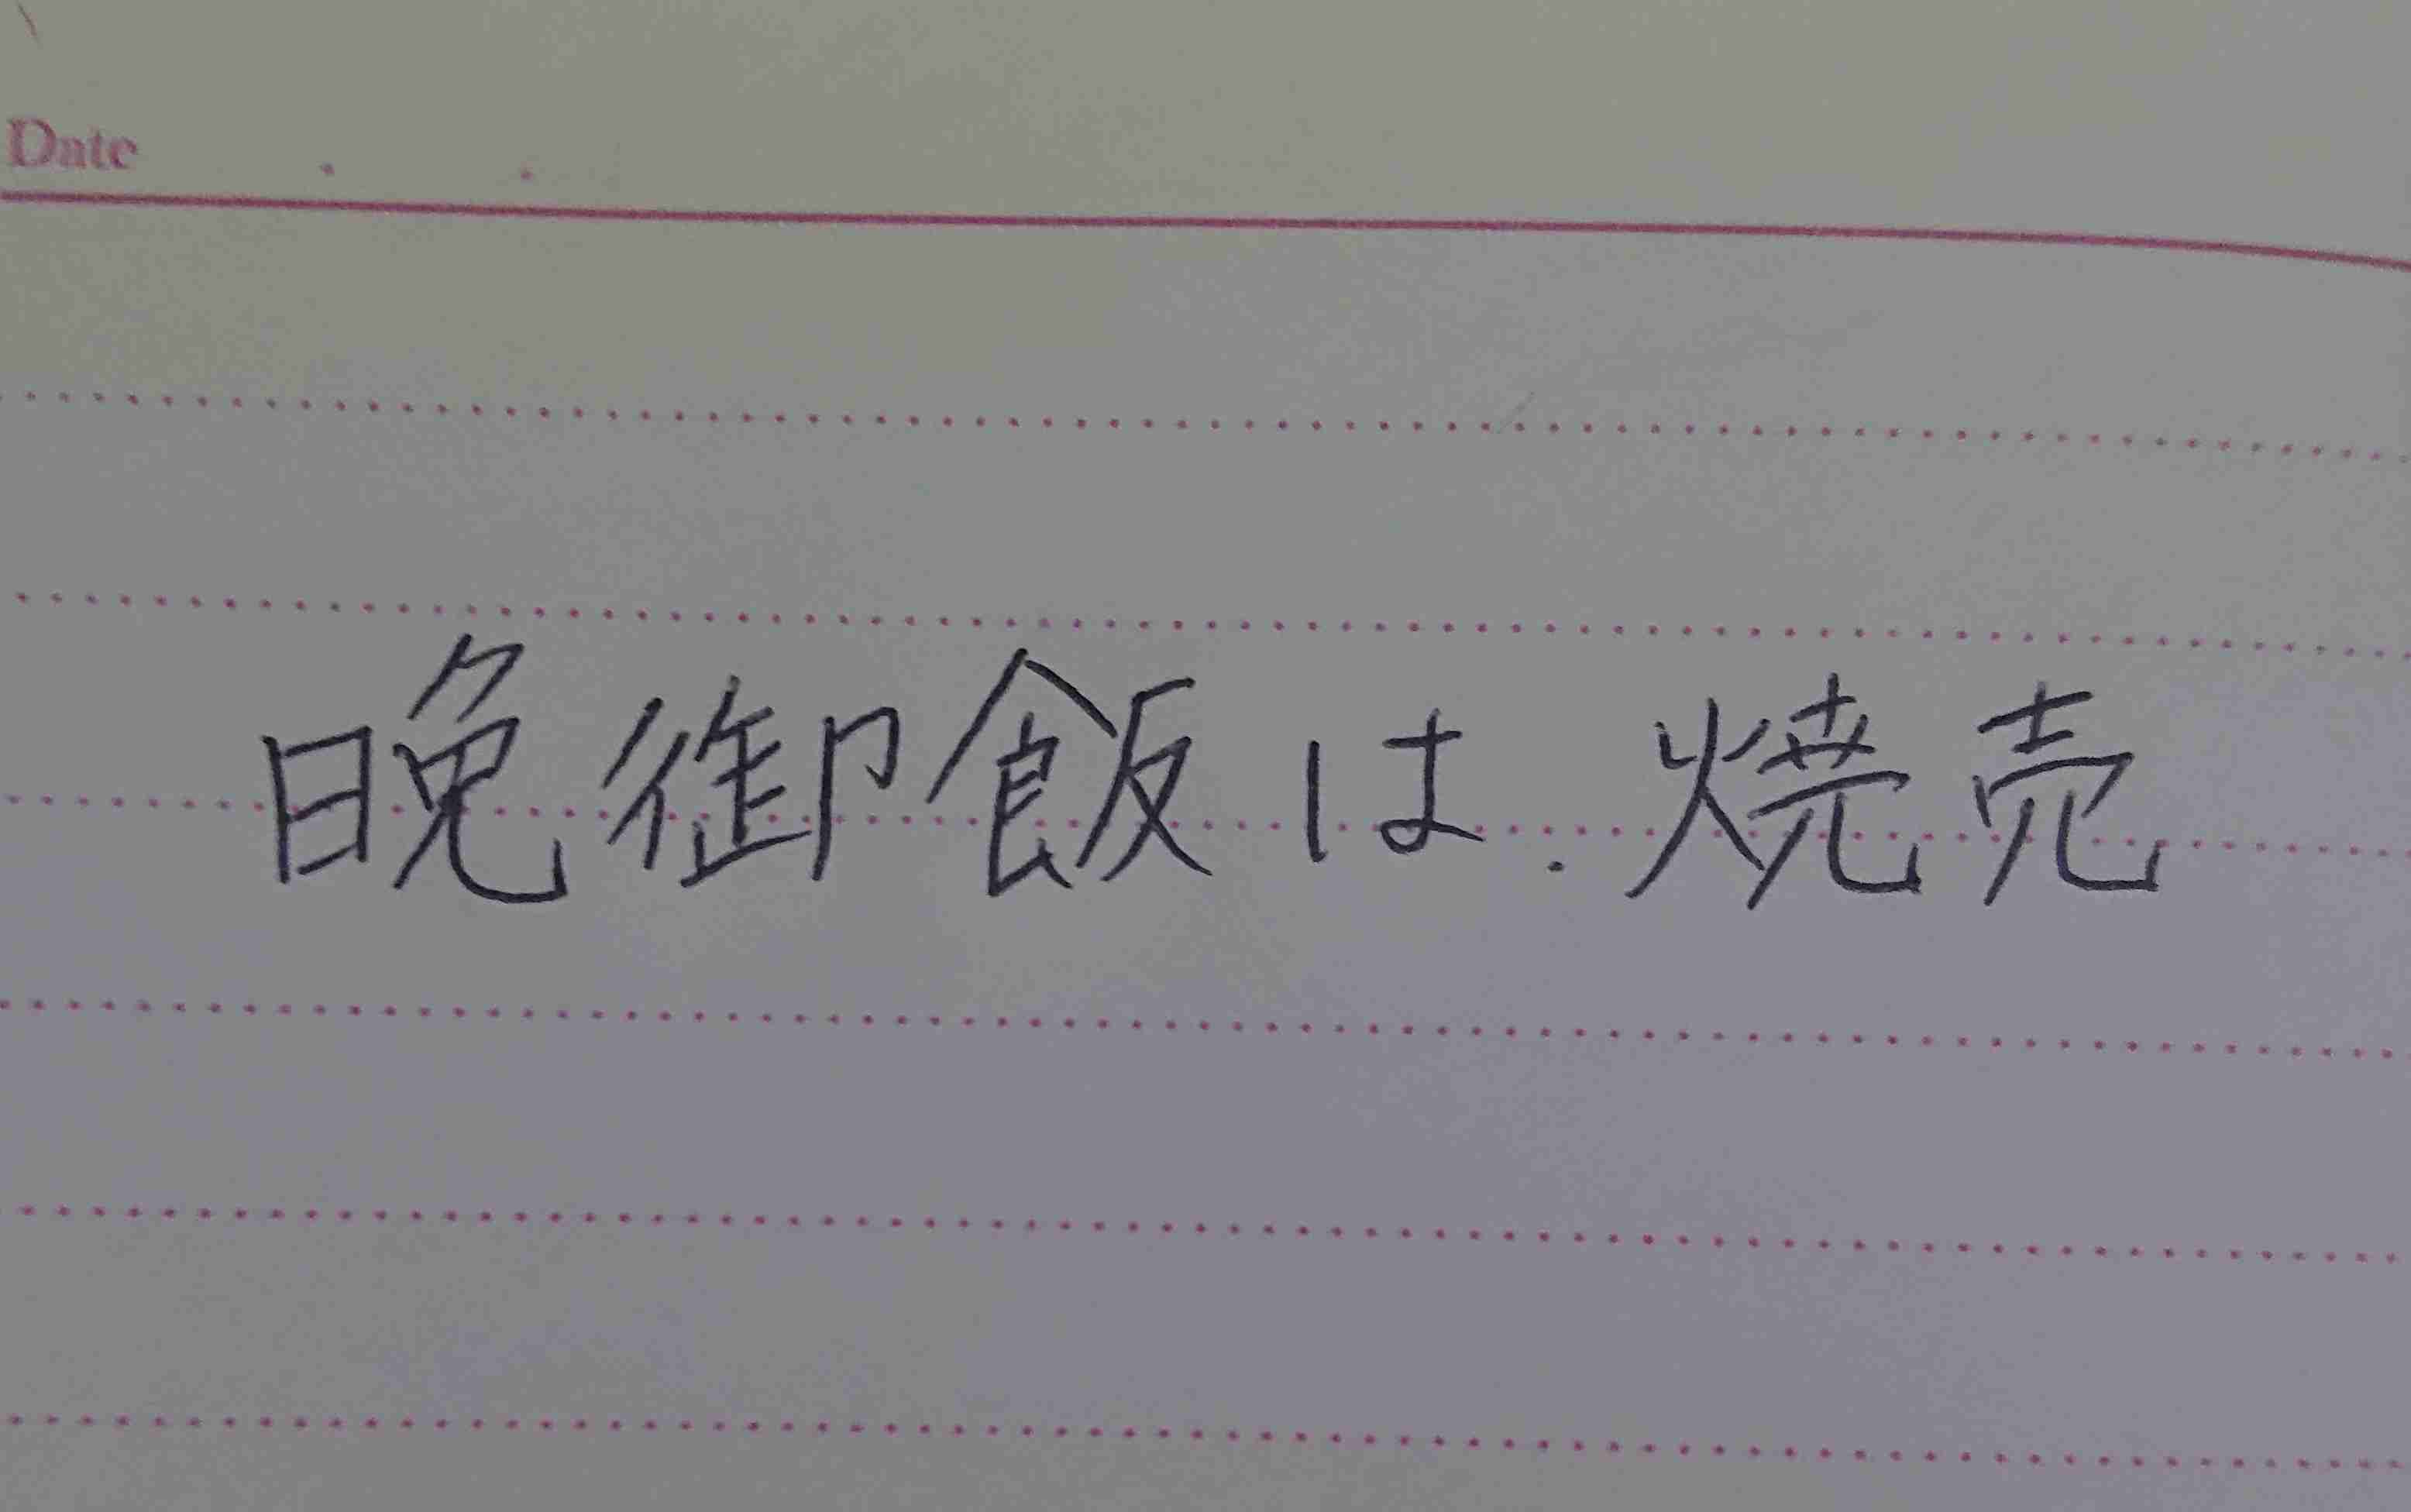 Date . .
晩御飯は.焼売